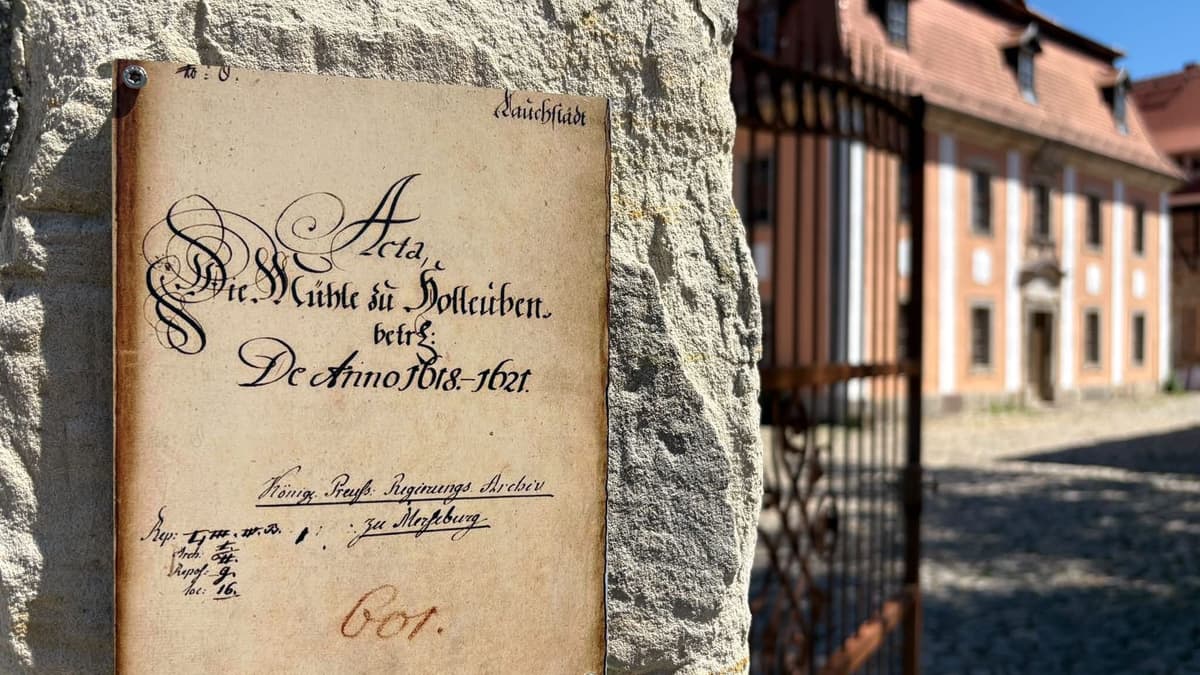 Lauchstädt
Acta,
Die Mühle zu Holleuben.
betr:
De Anno 1618.–1621.
Königl. Preuß. Regierungs Archiv
zu Merseburg.
Rep:
Arch:
Repos. 9.
loc: 16.
601.